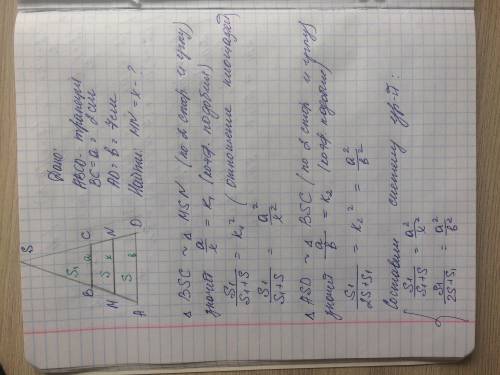 S
S₁
B a C
S x
M N
S b
A D
Дано:
ABCD - трапеция
BC = a = 2 см
AD = b = 7 см
Найти: MN = x - ?
Δ BSC ~ Δ MSN (по 2 стор. и углу)
значит a/x = k₁ (коэф. подобия)
S₁/(S₁+S) = k₁² (отношение площадей)
S₁/(S₁+S) = a²/x²
Δ ASD ~ Δ BSC (по 2 стор. и углу)
значит a/b = k₂ (коэф. подобия)
S₁/(2S+S₁) = k₂² = a²/b²
Составим систему ур-й:
{ S₁/(S₁+S) = a²/x²
S₁/(2S+S₁) = a²/b²